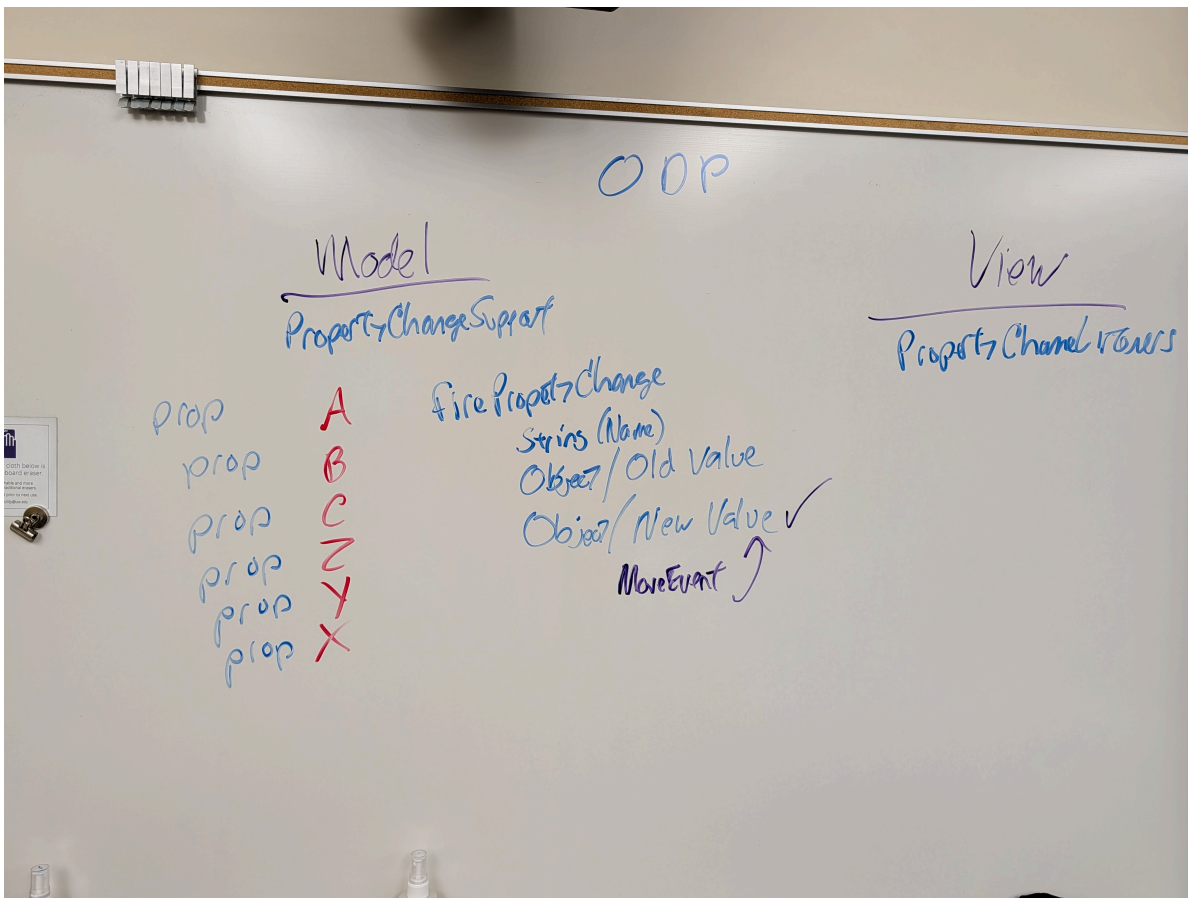 ODP
Model
PropertyChangeSupport
prop A
prop B
prop C
prop Z
prop Y
prop X
firePropertyChange
String (Name)
Object/Old Value
Object/New Value ✓
MoveEvent
View
PropertyChangeListeners
cloth below is
board eraser